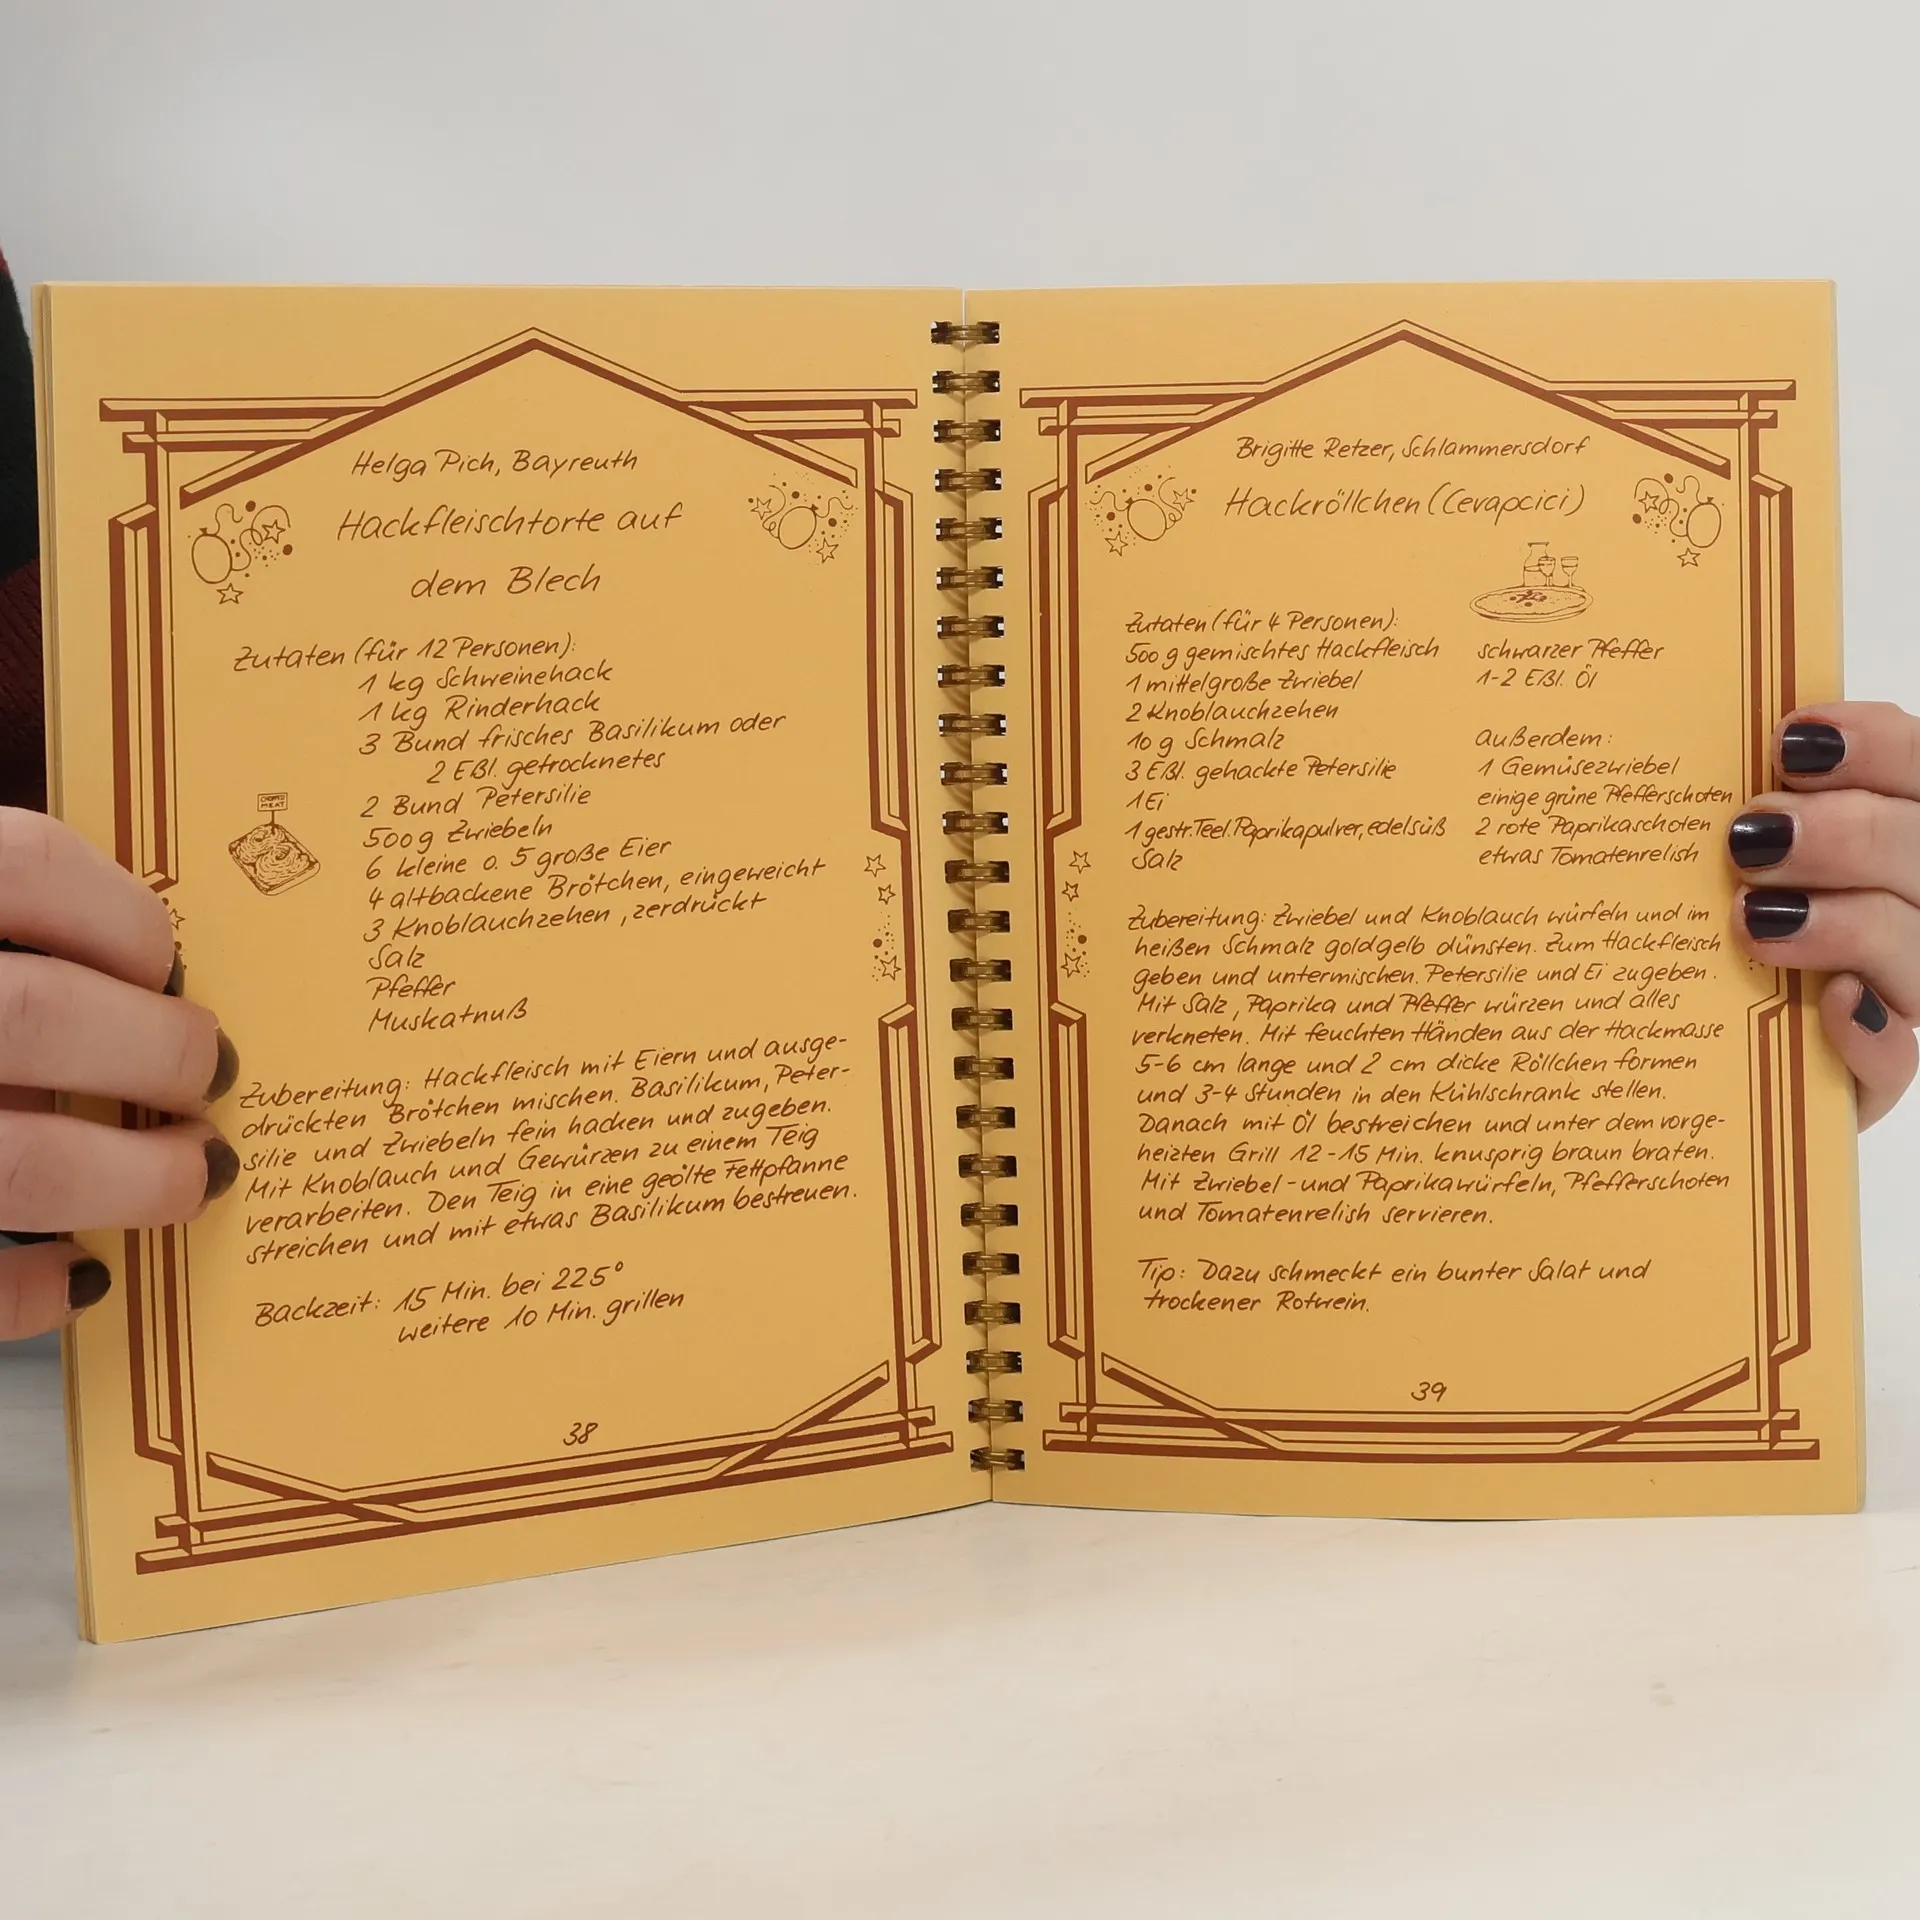 Helga Pich, Bayreuth
Hackfleischtorte auf
dem Blech
Zutaten (für 12 Personen):
1 kg Schweinehack
1 kg Rinderhack
3 Bund frisches Basilikum oder
2 Eßl. getrocknetes
2 Bund Petersilie
500 g Zwiebeln
6 kleine o. 5 große Eier
4 altbackene Brötchen, eingeweicht
3 Knoblauchzehen, zerdrückt
Salz
Pfeffer
Muskatnuß
CHOPPED
MEAT
Zubereitung: Hackfleisch mit Eiern und ausge-
drückten Brötchen mischen. Basilikum, Peter-
silie und Zwiebeln fein hacken und zugeben.
Mit Knoblauch und Gewürzen zu einem Teig
verarbeiten. Den Teig in eine geölte Fettpfanne
streichen und mit etwas Basilikum bestreuen.
Backzeit: 15 Min. bei 225°
weitere 10 Min. grillen
38
Brigitte Retzer, Schlammersdorf
Hackröllchen (Cevapcici)
Zutaten (für 4 Personen):
500 g gemischtes Hackfleisch
1 mittelgroße Zwiebel
2 Knoblauchzehen
10 g Schmalz
3 Eßl. gehackte Petersilie
1 Ei
1 gestr. Teel. Paprikapulver, edelsüß
Salz
schwarzer Pfeffer
1-2 Eßl. Öl
außerdem:
1 Gemüsezwiebel
einige grüne Pfefferschoten
2 rote Paprikaschoten
etwas Tomatenrelish
Zubereitung: Zwiebel und Knoblauch würfeln und im
heißen Schmalz goldgelb dünsten. Zum Hackfleisch
geben und untermischen. Petersilie und Ei zugeben.
Mit Salz, Paprika und Pfeffer würzen und alles
verkneten. Mit feuchten Händen aus der Hackmasse
5-6 cm lange und 2 cm dicke Röllchen formen
und 3-4 Stunden in den Kühlschrank stellen.
Danach mit Öl bestreichen und unter dem vorge-
heizten Grill 12-15 Min. knusprig braun braten.
Mit Zwiebel- und Paprikawürfeln, Pfefferschoten
und Tomatenrelish servieren.
Tip: Dazu schmeckt ein bunter Salat und
trockener Rotwein.
39